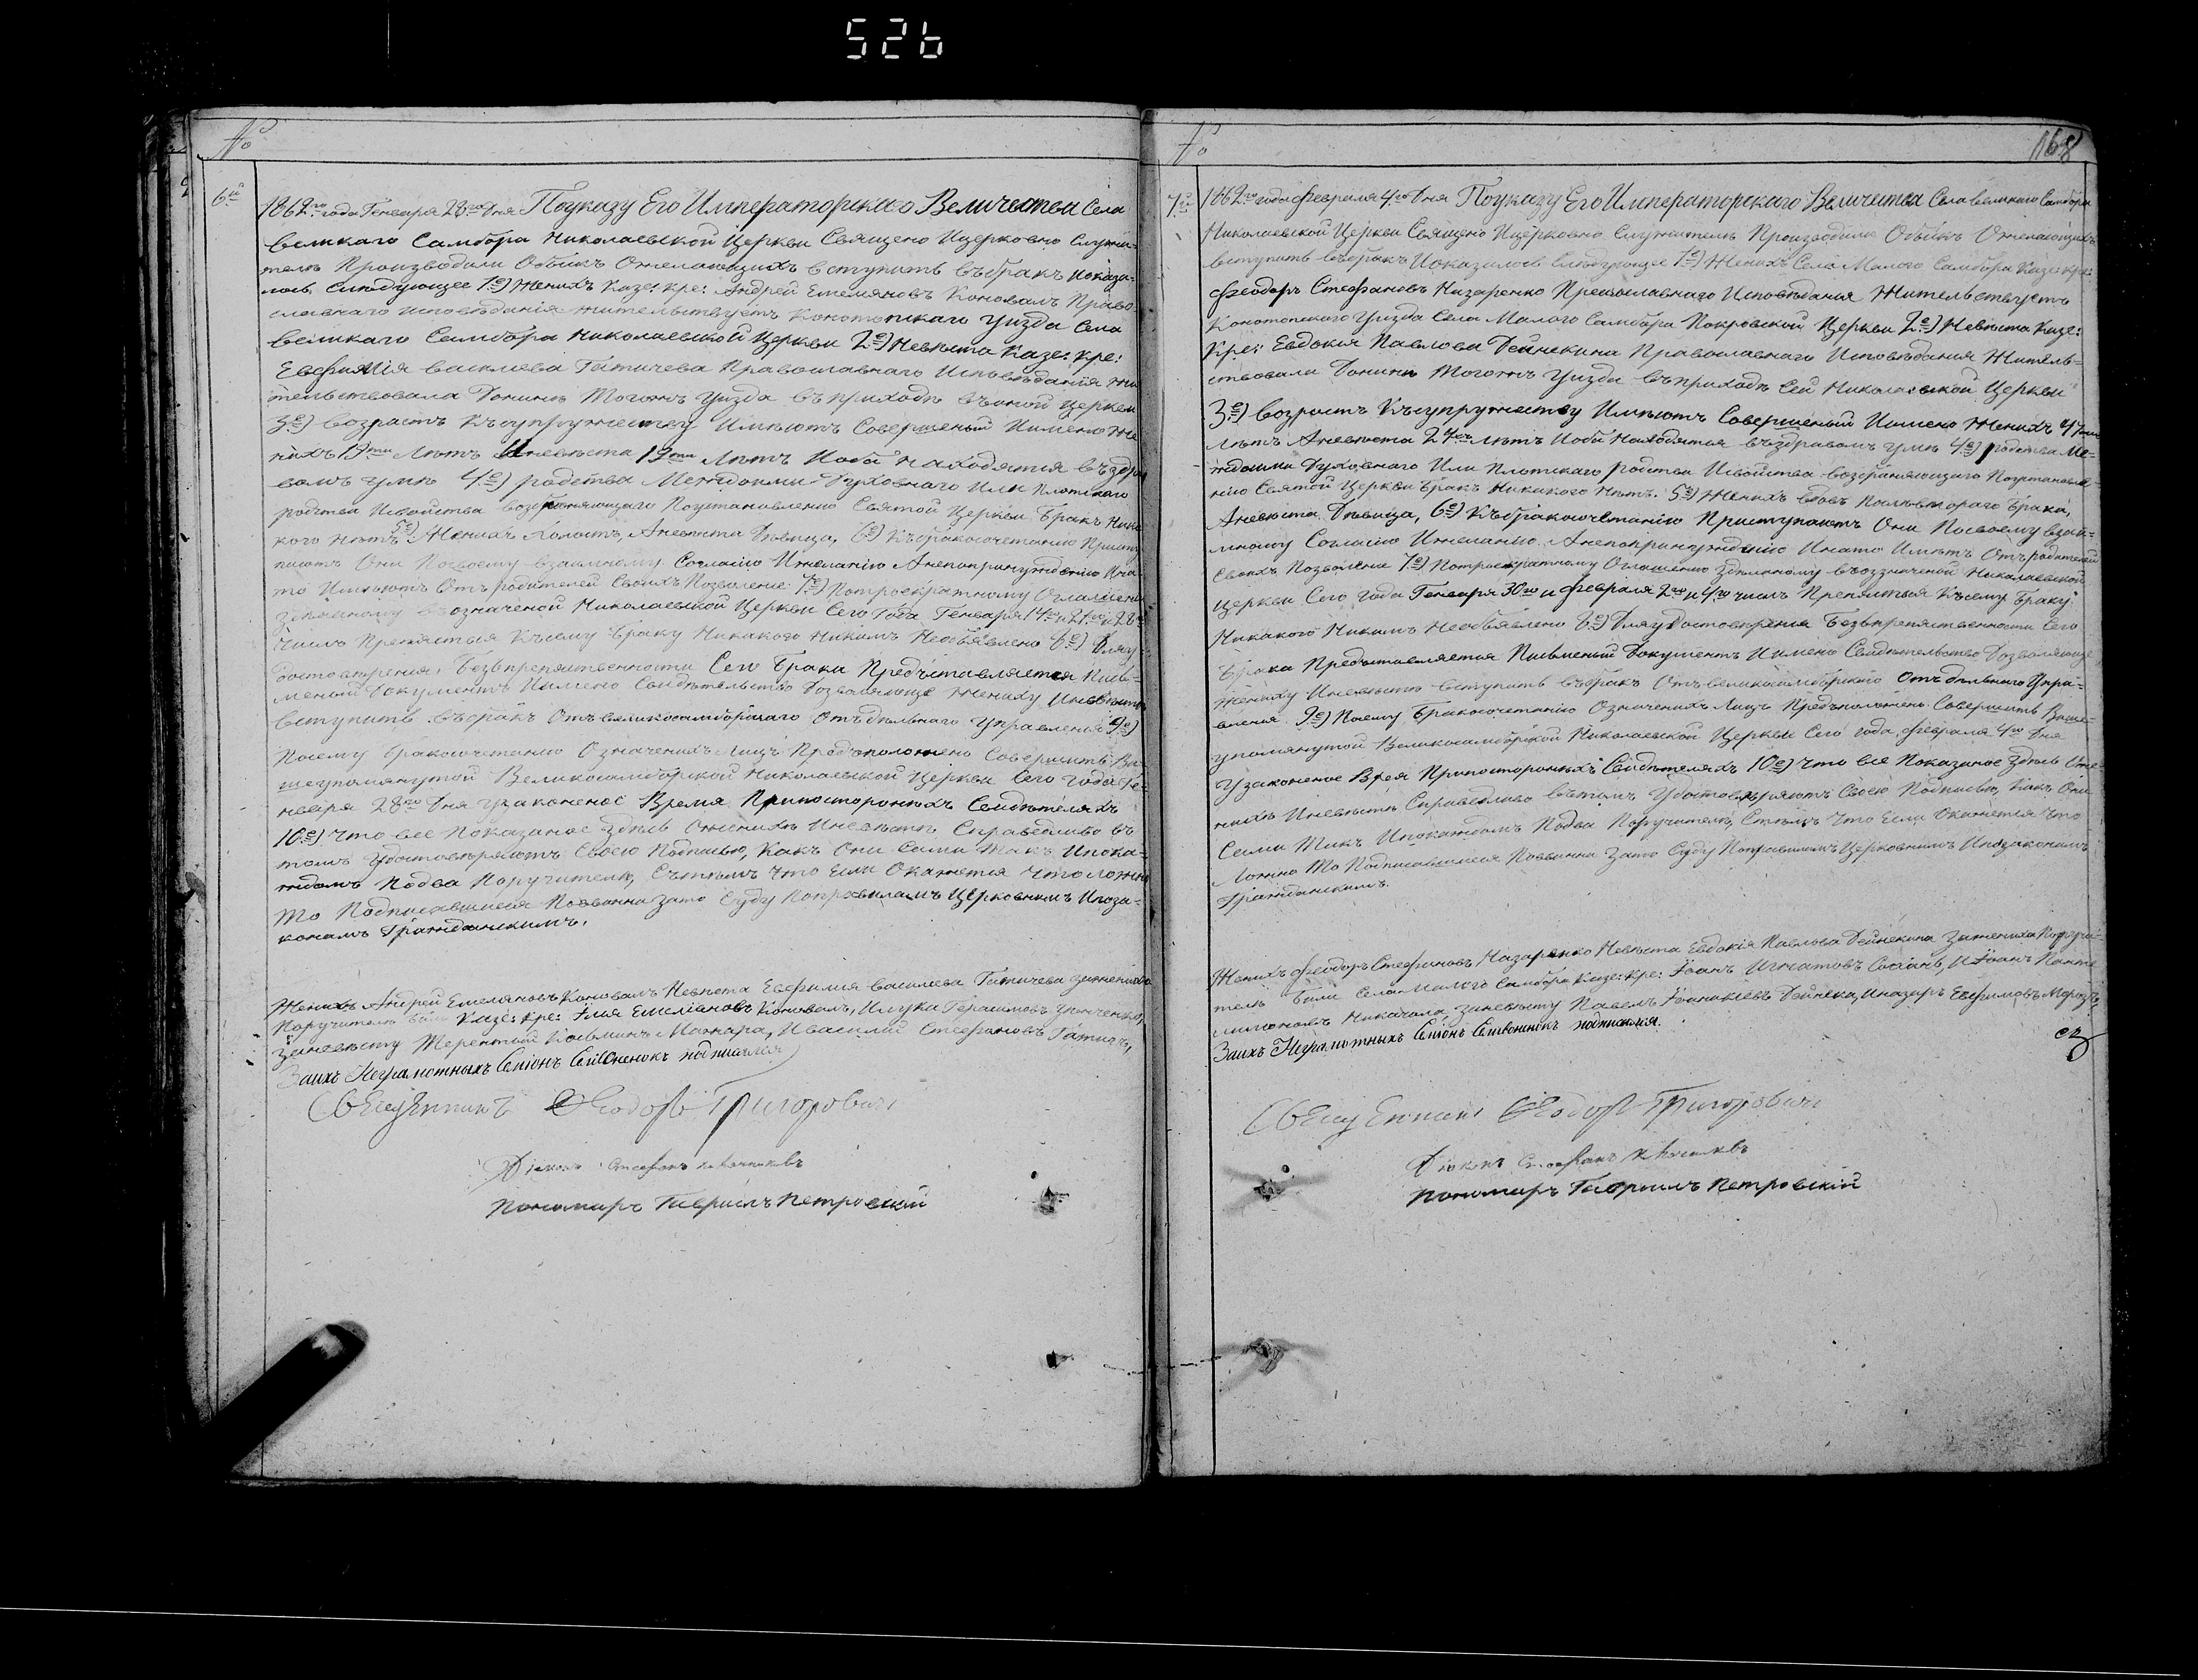 526
№
6й
1862го года Генваря 28го Дня Поуказу Его Императорскаго Величества Села
великаго Самбора Николаевской Церкви Священо Ицерковно Служи-
тели Производили Обыскъ Ожелающихъ вступить въбракъ иоказа-
лось Слѣдующее 1е) Женихъ Казе: кре: Андрей Емеляновъ Коновалъ Право-
славнаго исповѣданія жительствуетъ Конотопскаго Уизда Села
великаго Самбора Николаевской Церкви 2е) Невѣста Казе: Кре:
Евфимія василева Гатичева Православнаго Исповѣданія жи
тельствовала Донинѣ Тогожъ Уизда въприходѣ въоной Церкви
3е) возрастъ Късупружеству Имѣютъ Совершеный Иимено Же
нихъ 19ти Лѣтъ Аневѣста 19ти Лѣтъ Иоба находятся въздра
вомъ умѣ 4е) родства Междоими Духовнаго Или Плотскаго
родства Исвойства возбраняющаго Поустановленію Святой Церкви Бракъ Ника
кого нѣтъ 5е) Женихъ Холостъ, Аневѣста Дѣвица, 6е) Къбракосочетанію Присту
паютъ Они Посвоему взаимному Согласію Ижеланію Анепопринужденію Ина
то Имѣютъ Отъ родителей Своихъ Позволеніе 7е) Потроекратному Оглашенію
Здѣланому въозначеной Николаевской Церкви Сего Года Генваря 14го и 21го и 28го
Числъ Препятствия Къ сему Браку Никакого Никимъ Необъявлено 8е) Дляу
достоверения Безъпрепятственности Сего Брака Предъставляется Пись-
меный Документъ Иимено Свидѣтельство Дозволяюще Жениху Иневѣстѣ
вступить въбракъ Отъ великосамборскаго Отъдѣльнаго Управленія 9е)
Посему Бракосочетанію Означенихъ Лицъ Предъположено Совершить Ви-
шеупомянутой Великосамборской Николаевской Церкви Сего года Ге-
нваря 28го Дня узаконеное Время Припосторонихъ Свидѣтеляхъ
10е) Что все Показаное Здѣсь Оженихѣ Иневѣстѣ Справедливо въ
томъ Удостовѣряютъ Своею Подписью, Какъ Они Сами Такъ Ипока-
ждомъ Подва Поручителю, Сътѣмъ Что Если Окажется Что Ложно
То Подписавшиеся Повинни Зато Суду Поправиламъ Церковнимъ Ипоза-
конамъ Гражданскимъ.
Женихъ Андрей Емеляновъ Коновалъ Невѣста Евфимия василева Гатичева зажениха
Поручители били Казе: Кре: Илия Емеліановъ Коновалъ, Илука Герасимовъ
Заневѣсту Терентий Козьминъ Махнара, Ивасилий Стефановъ Гатичъ,
Заихъ Неграмотныхъ Симіонъ подписался
Священникъ Феодоръ Григоровичъ
Діаконъ Стефанъ
Пономаръ Гавриилъ Петровский
№
168
7й
1862го года Февраля 4го Дня Поуказу Его Императорскаго Величества Села великаго Самбора
Николаевской Церкви Священо Ицерковно Служители Производили Обыскъ Ожелающихъ
вступить въбракъ Иоказалось Слѣдующее 1е) Женихъ Села Малого Самбора Казе: кре:
Феодоръ Стефановъ Назаренко Православнаго Исповѣдания Жительствуетъ
Конотопскаго Уизда Села Малого Самбора Покровской Церкви 2е) Невѣста Казе:
Кре: Евдокия Павлова Дейнекина Православнаго Исповѣдания Житель-
ствовала Донинѣ Тогожъ Уизда въприходѣ Сей Николаевской Церкви
3е) возрастъ Късупружеству Имѣютъ Совершеный Иимено Женихъ
лѣтъ Аневѣста 24хъ лѣтъ Иоба Находятся въздравомъ умѣ 4е) родства Ме-
ждоими Духовнаго Или Плотскаго родства Исвойства возбраняющаго Поустановле
нію Святой Церкви Бракъ Никакого Нѣтъ. 5е) Женихъ вдовъ Послѣ втораго Брака,
Аневѣста Дѣвица, 6е) Къбракосочетанію Приступаютъ Они Посвоему взаи-
мному Согласію Ижеланію Анепопринужденію Инато Имѣтъ Отъ родителей
Своихъ Позволение 7е) Потроекратному Оглашению Здѣланному въозначеной Николаевской
Церкви Сего Года Генваря 30го и Февраля 2го и 4го числъ Препятствия Късему Браку
Никакого Никимъ Необъявлено 8е) Дляудостоверения Безъпрепятственности Сего
Брака Предъставляется Писменый Документъ Иимено Свидѣтельство Дозволяюще
Жениху Иневѣстѣ вступить въбракъ Отъ великосамборскаго Отъдѣльнаго Упра-
вления 9е) Посему Бракосочетанію Означенихъ Лицъ Предъположено Совершить Више-
упомянутой Великосамборской Николаевской Церкви Сего года Февраля 4го Дня
Узаконеное Время Припосторонихъ Свидѣтеляхъ 10е) Что все Показаное Здѣсь Оже
нихѣ Иневѣстѣ Справедливо вътомъ Удостовѣряютъ Своею Подписью, Какъ Они
Сами Такъ Ипокаждомъ Подва Поручителю, Стѣмъ Что Если Окажется Что
Ложно То Подписавшиеся Повинни Зато Суду Поправиламъ Церковнимъ Ипозаконамъ
Гражданскимъ.
Женихъ Феодоръ Стефановъ Назаренко Невѣста Евдокія Павлова Дейнекина Зажениха Поручи-
тели Били Села Малого Самбора Казе: Кре: Іоанъ Игнатовъ Сохань, И Іоанъ Панте
лимоновъ Никачала, заневѣсту Павелъ Іоаникіевъ Дейнека, Иназаръ Евфимовъ Морозъ,
Заихъ Неграмотныхъ Симіонъ подписался.
Священникъ Феодоръ Григоровичъ
Діаконъ Стефанъ
Пономаръ Гавриилъ Петровскій